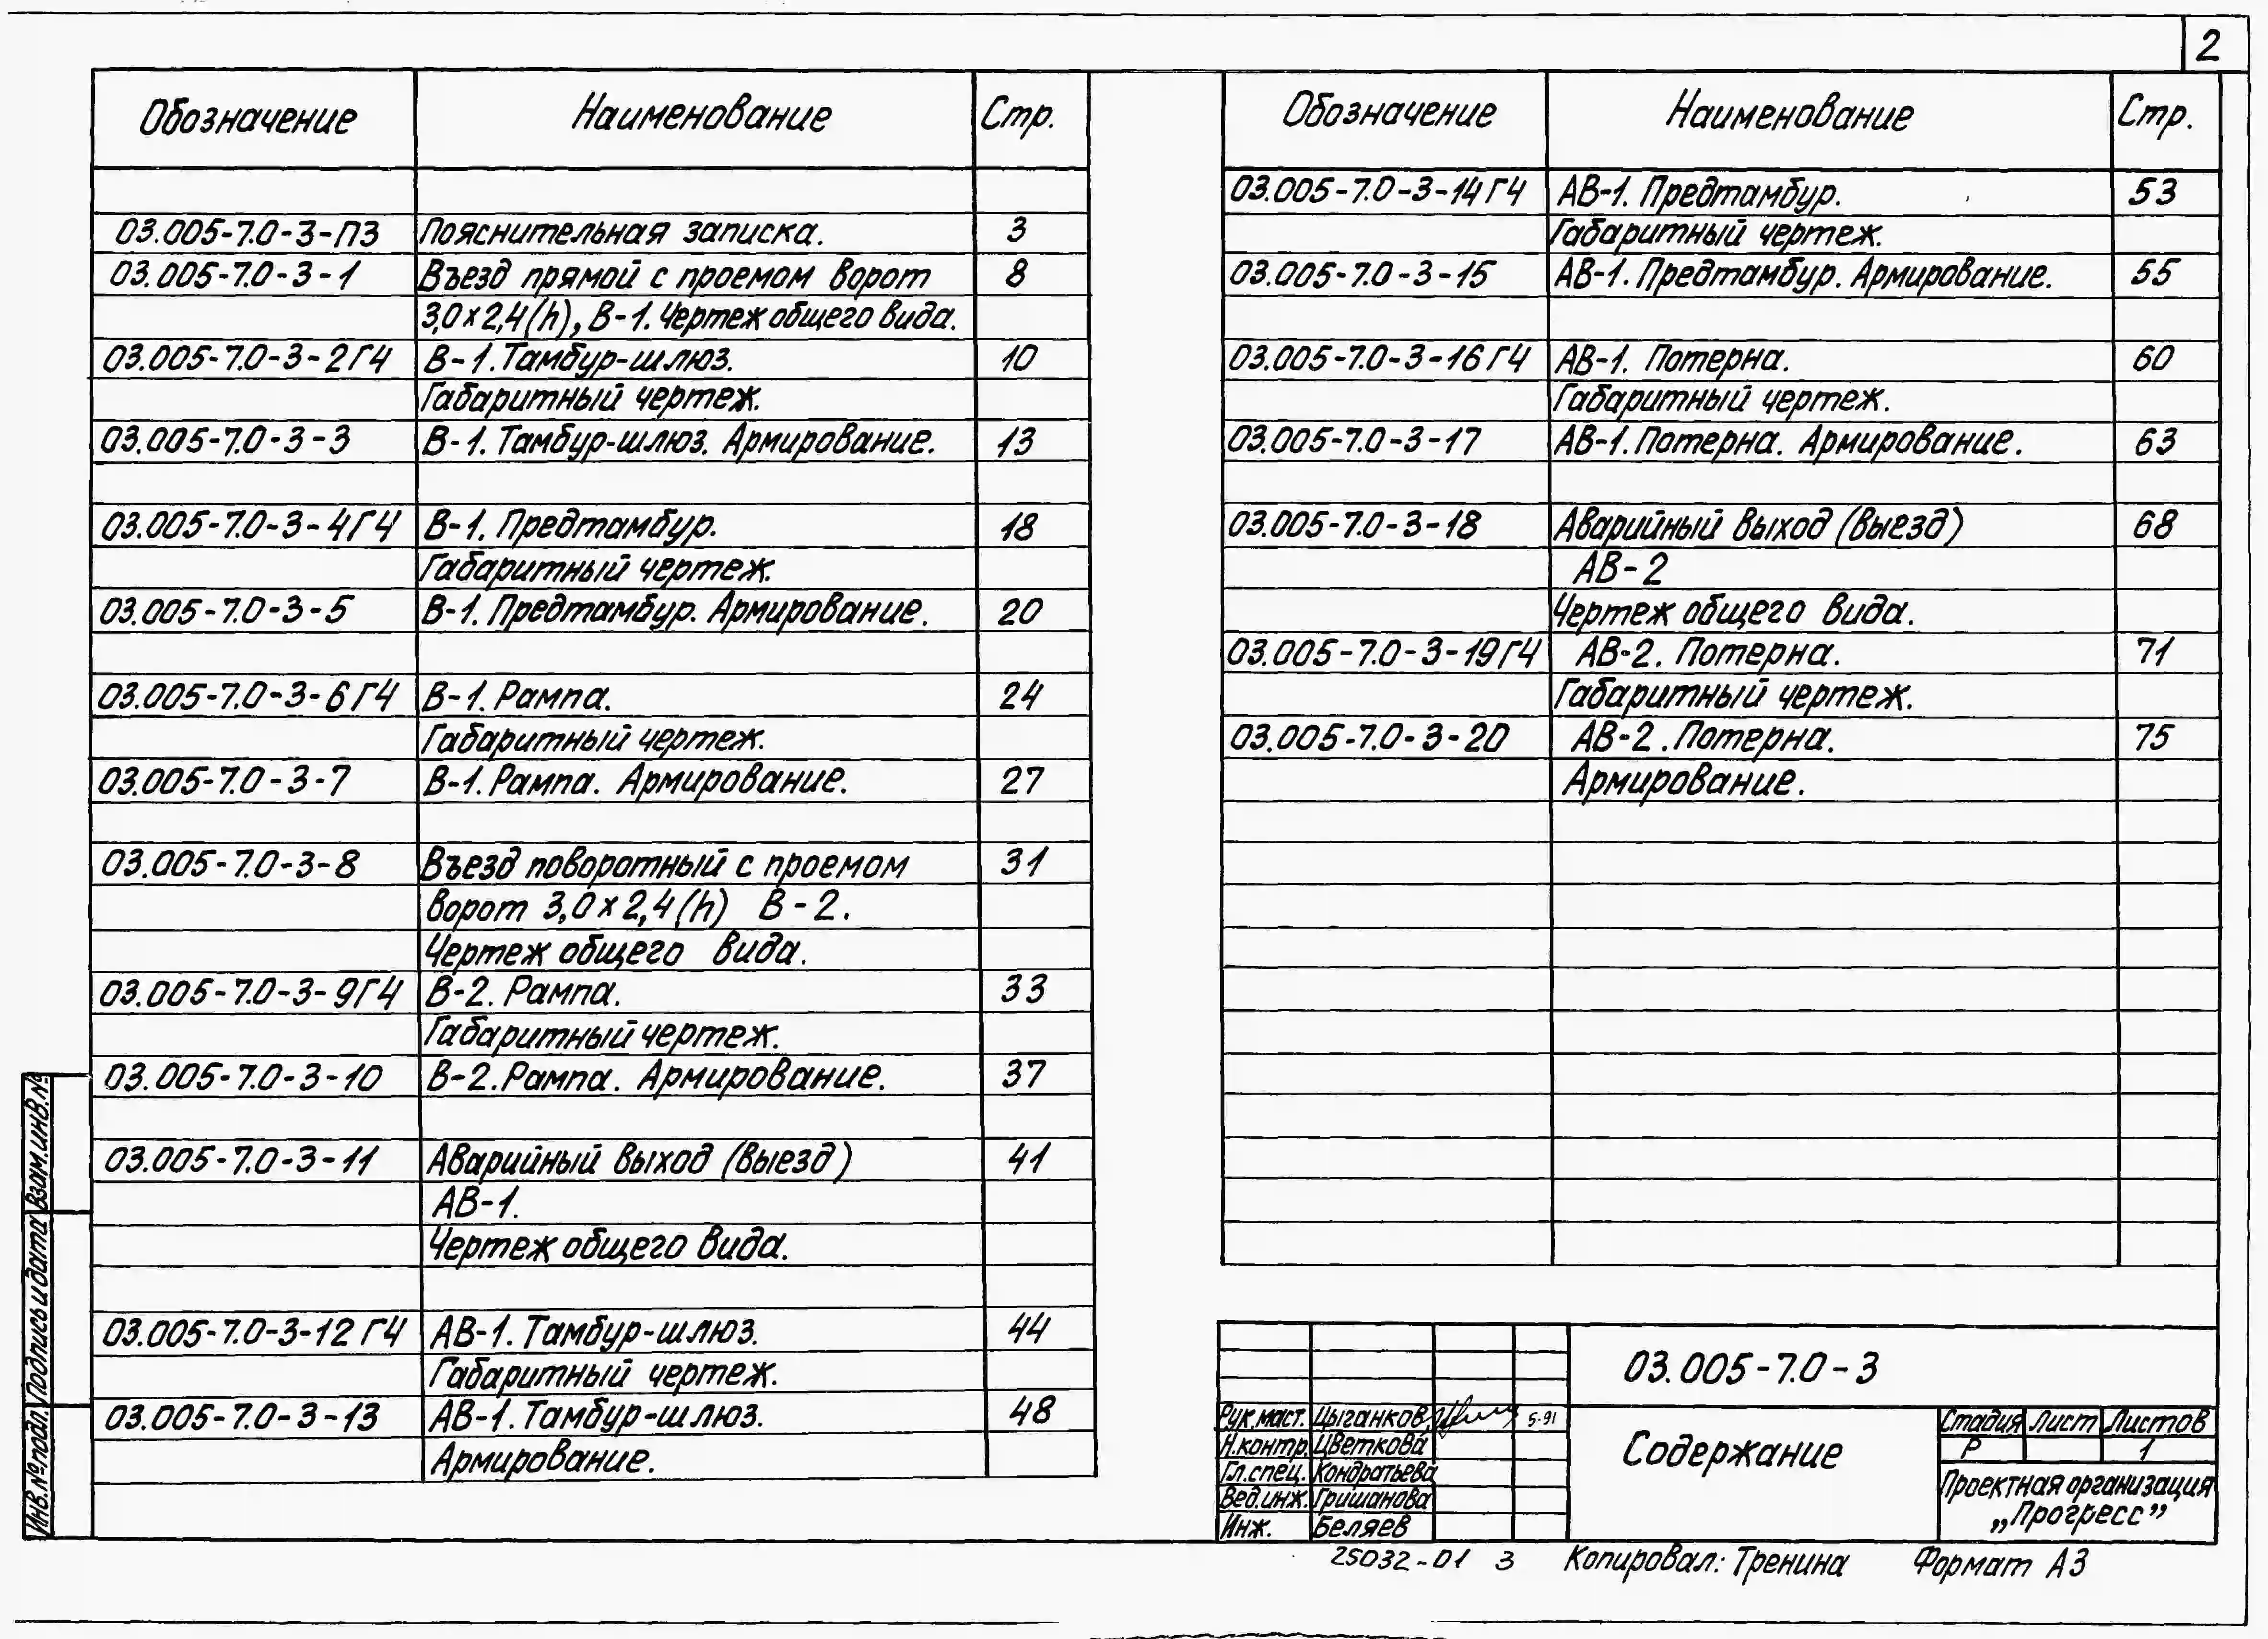 2
Обозначение Наименование Стр.
03.005-7.0-3-ПЗ Пояснительная записка. 3
03.005-7.0-3-1 Въезд прямой с проемом ворот 8
3,0×2,4(h), В-1. Чертеж общего вида.
03.005-7.0-3-2ГЧ В-1. Тамбур-шлюз. 10
Габаритный чертеж.
03.005-7.0-3-3 В-1. Тамбур-шлюз. Армирование. 13
03.005-7.0-3-4ГЧ В-1. Предтамбур. 18
Габаритный чертеж.
03.005-7.0-3-5 В-1. Предтамбур. Армирование. 20
03.005-7.0-3-6ГЧ В-1. Рампа. 24
Габаритный чертеж.
03.005-7.0-3-7 В-1. Рампа. Армирование. 27
03.005-7.0-3-8 Въезд поворотный с проемом 31
ворот 3,0×2,4(h) В-2.
Чертеж общего вида.
03.005-7.0-3-9ГЧ В-2. Рампа. 33
Габаритный чертеж.
03.005-7.0-3-10 В-2. Рампа. Армирование. 37
03.005-7.0-3-11 Аварийный выход (выезд) 41
АВ-1.
Чертеж общего вида.
03.005-7.0-3-12ГЧ АВ-1. Тамбур-шлюз. 44
Габаритный чертеж.
03.005-7.0-3-13 АВ-1. Тамбур-шлюз. 48
Армирование.
Обозначение Наименование Стр.
03.005-7.0-3-14ГЧ АВ-1. Предтамбур. 53
Габаритный чертеж.
03.005-7.0-3-15 АВ-1. Предтамбур. Армирование. 55
03.005-7.0-3-16ГЧ АВ-1. Потерна. 60
Габаритный чертеж.
03.005-7.0-3-17 АВ-1. Потерна. Армирование. 63
03.005-7.0-3-18 Аварийный выход (выезд) 68
АВ-2
Чертеж общего вида.
03.005-7.0-3-19ГЧ АВ-2. Потерна. 71
Габаритный чертеж.
03.005-7.0-3-20 АВ-2. Потерна. 75
Армирование.
Взам.инв.№
Подпись и дата
Инв.№ подл.
03.005-7.0-3
Рук.маст. Цыганков 5-91
Н.контр. Цветкова
Гл.спец. Кондратьева
Вед.инж. Гришанова
Инж. Беляев
Содержание
Стадия Лист Листов
Р 1
Проектная организация
„Прогресс”
25032-01 3 Копировал: Тренина Формат А3